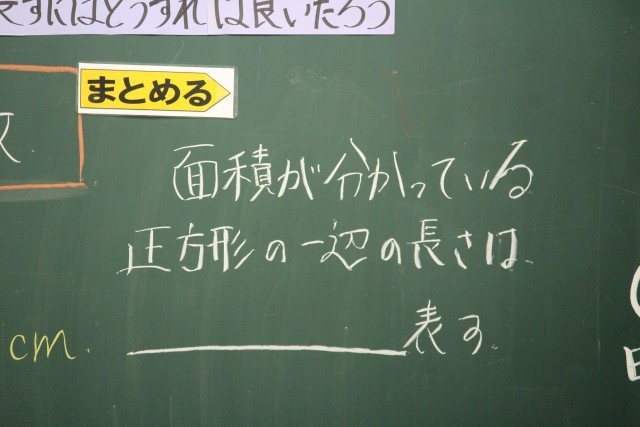 表すにはどうすれば良いだろう
まとめる
面積が分かっている
正方形の一辺の長さは、
cm. ＿＿＿＿＿＿＿＿表す。